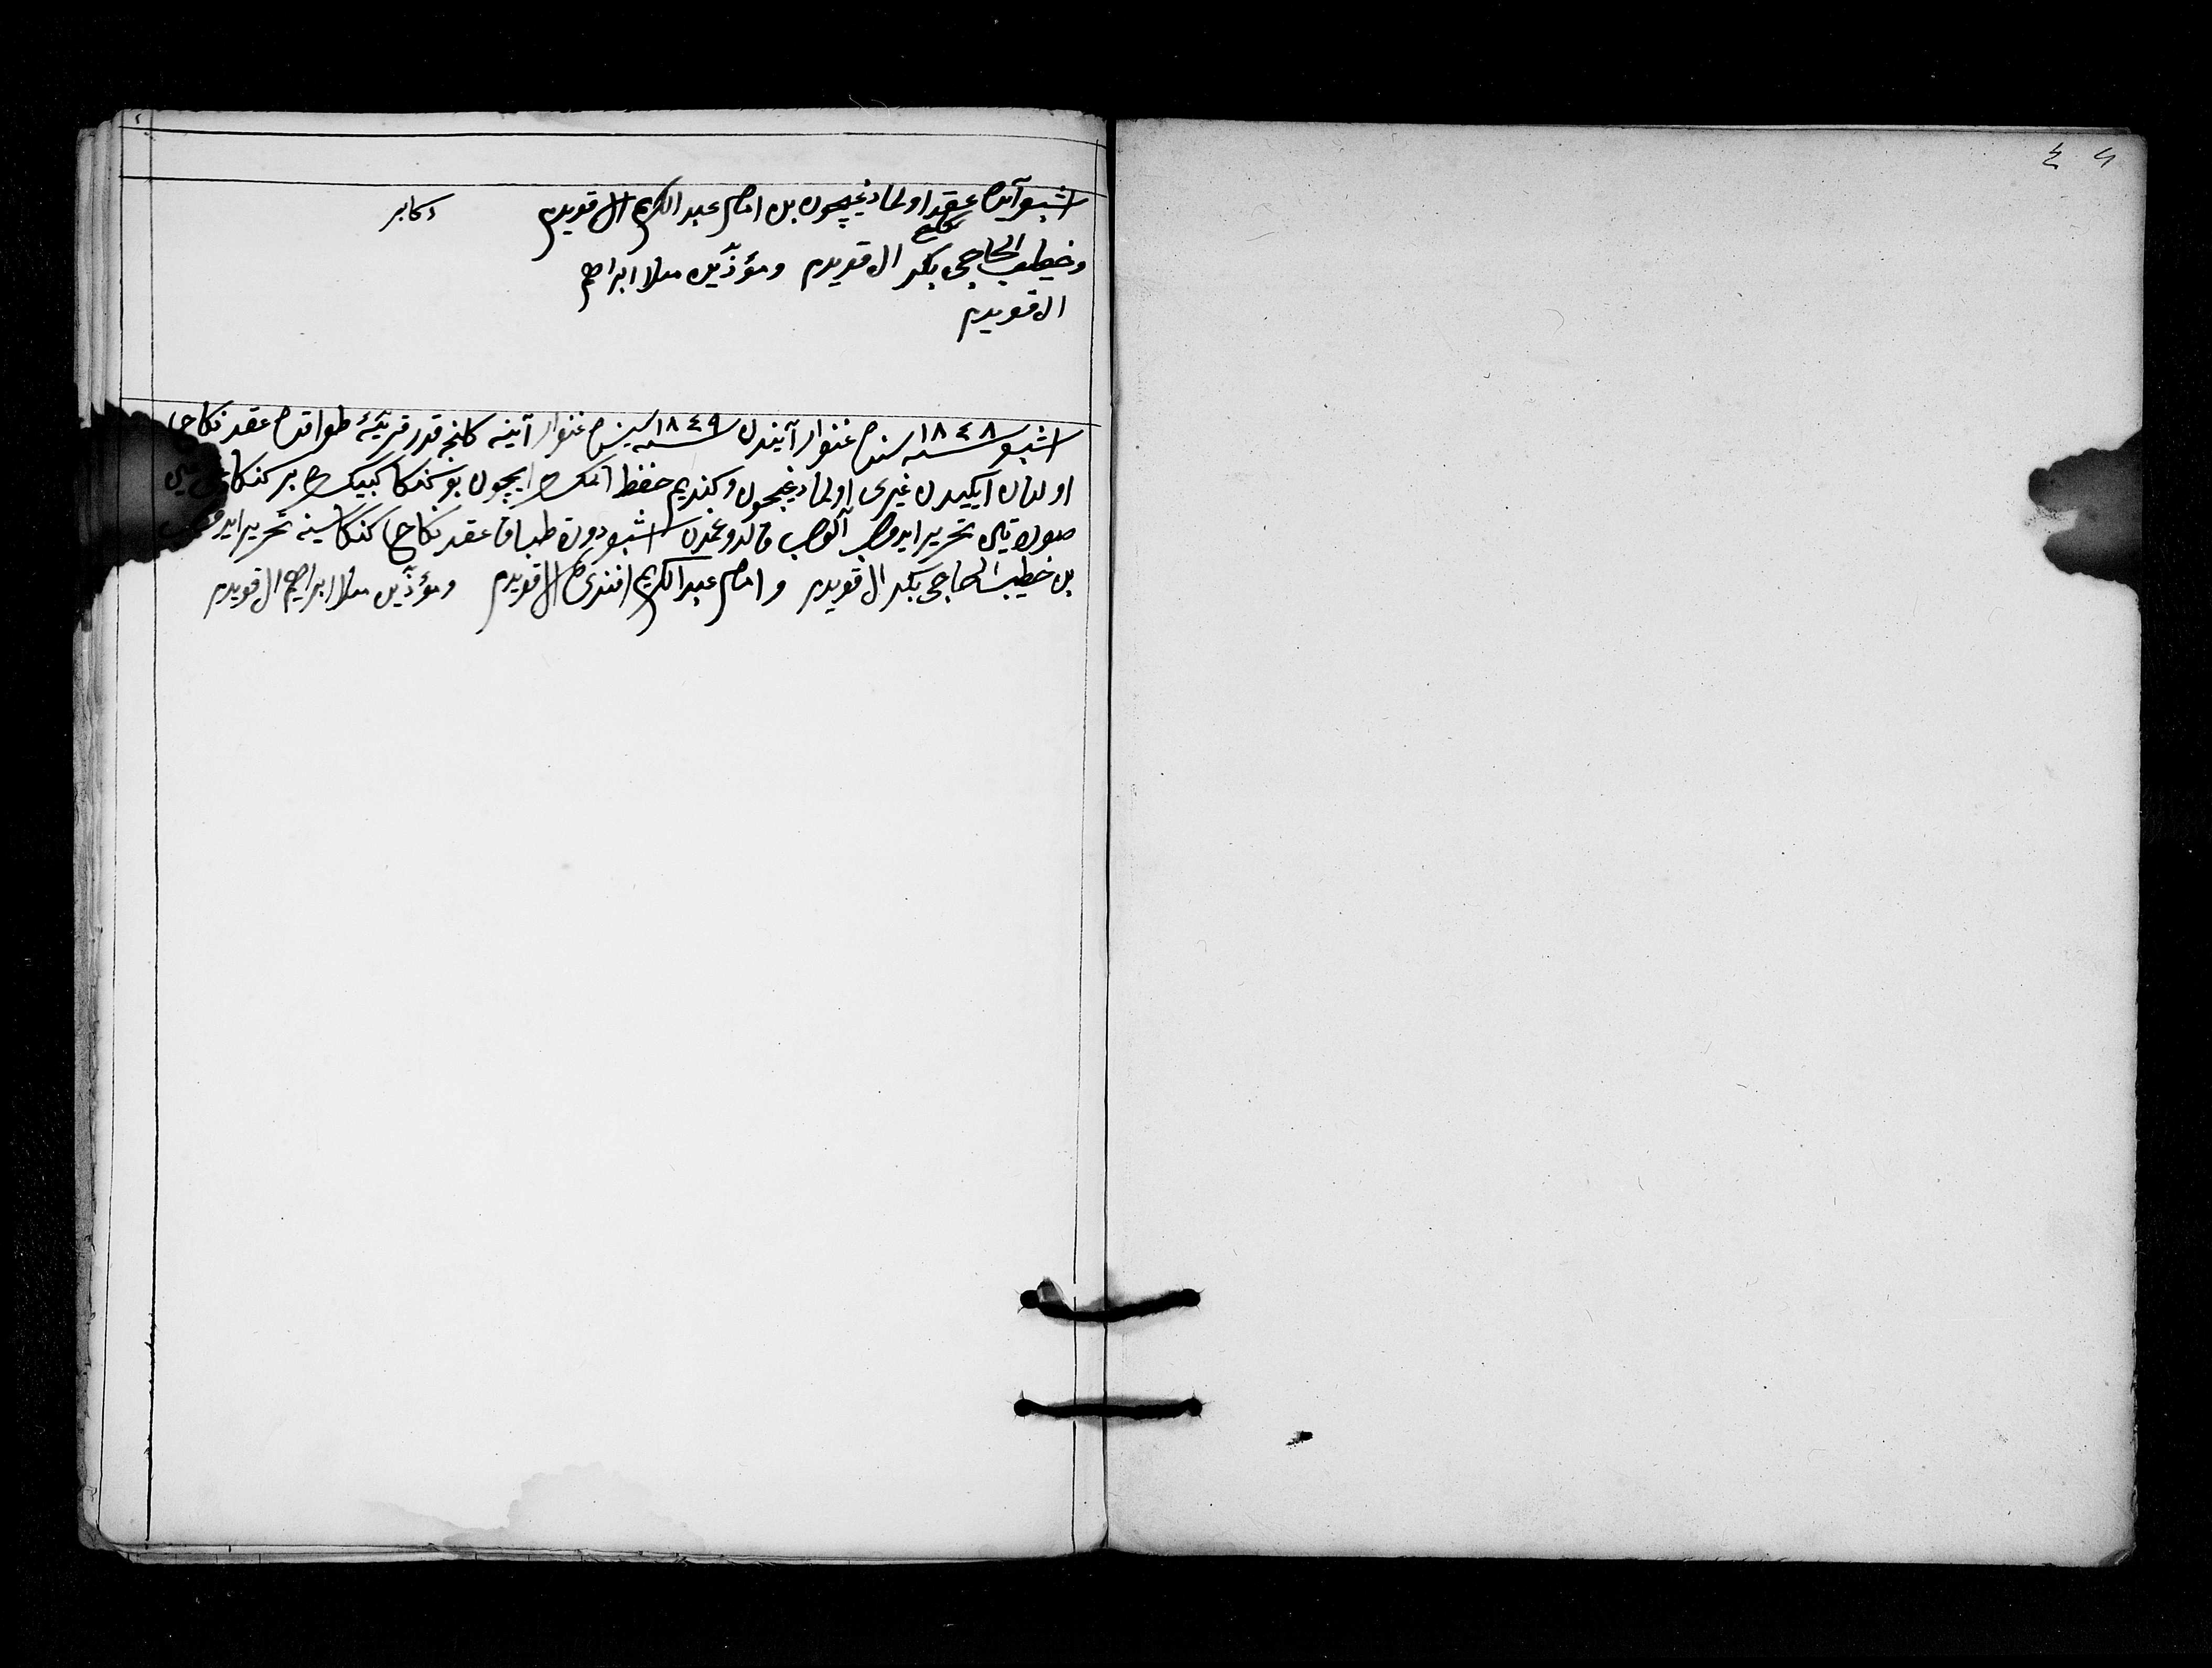 اشبو آیده عقد اولمادیغیچون بن امام عبد الکریم ال قویدم
دکابر
نکاح
وخطیب الحاجی بکر ال قویدم ومؤذّن ملا ابراهیم
ال قویدم
اشبو ١٨٤٨ سنه سنده غنوار آیندن ١٨٤٩ سنه سینده غنوار آینه کلنجه قدر قریۀ طواقده عقد نکاحی
اولنان ایکیدن غیری اولمادیغیچون وکندیم حفظ اتمک ایچون بو کنکا کبیک بر کنکا
صورتی تحریر ایدوب آلوب قالدوغمدن اشبو دورت طباقا عقد نکاح کنکاسینه تحریر ایدوب
بن خطیب الحاجی بکر ال قویدم وامام عبد الکریم افندی ال قویدم ومؤذّن ملا ابراهیم ال قویدم